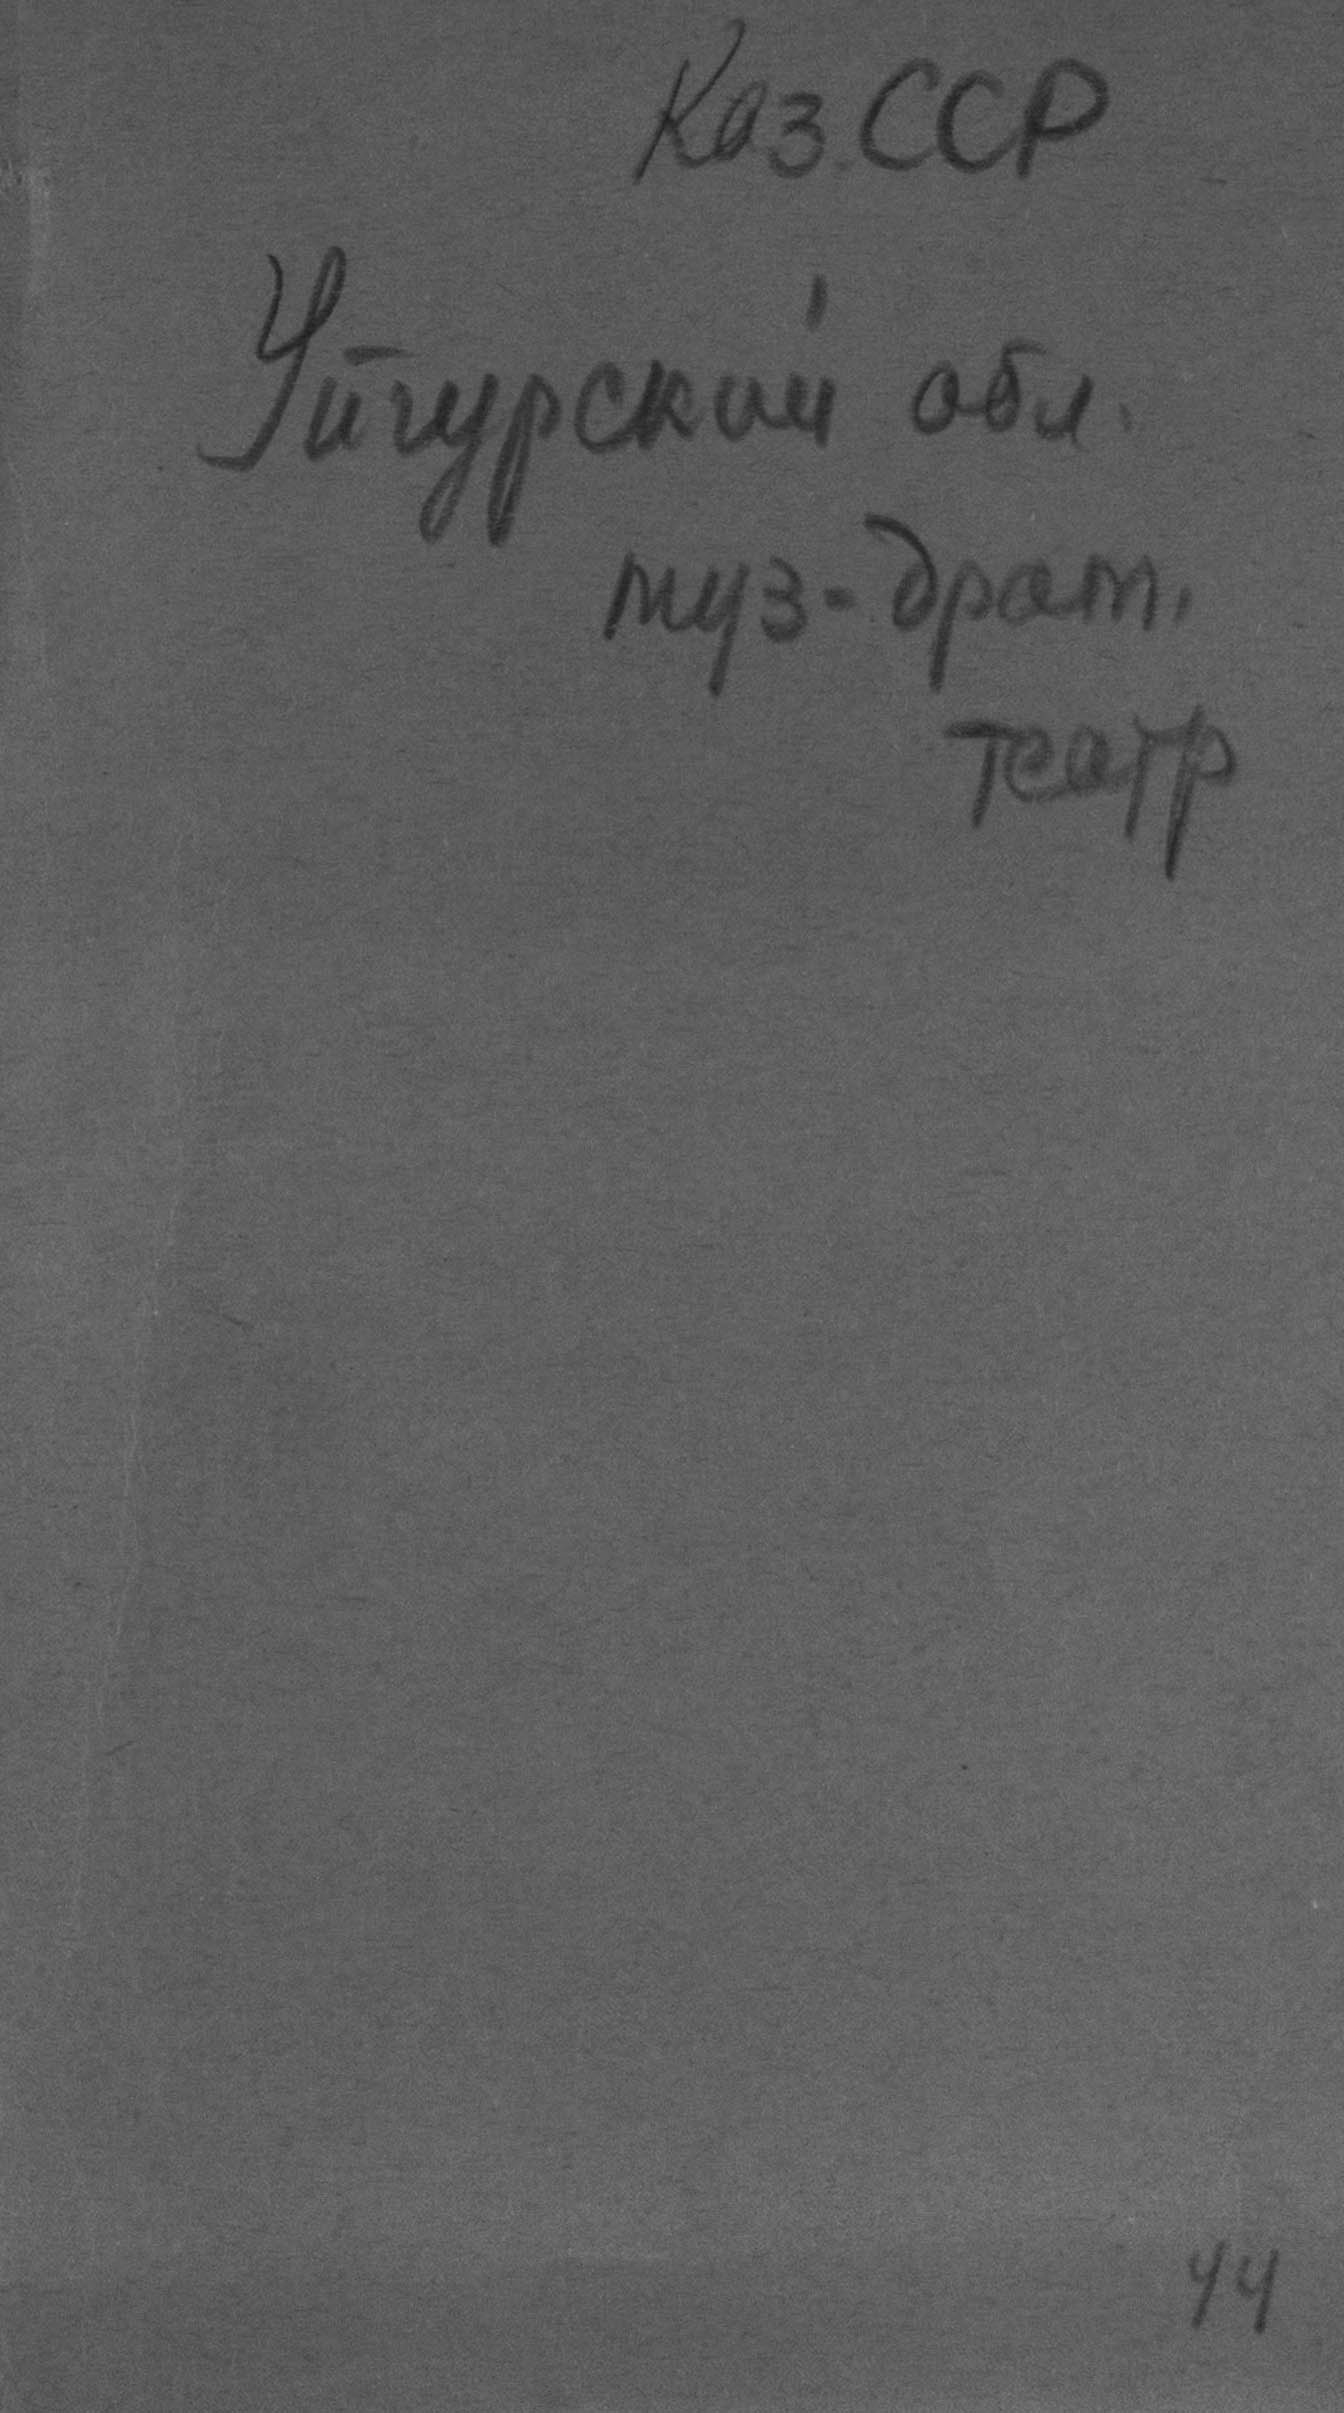 Каз. ССР
Уйгурский обл.
муз-драм.
театр
44